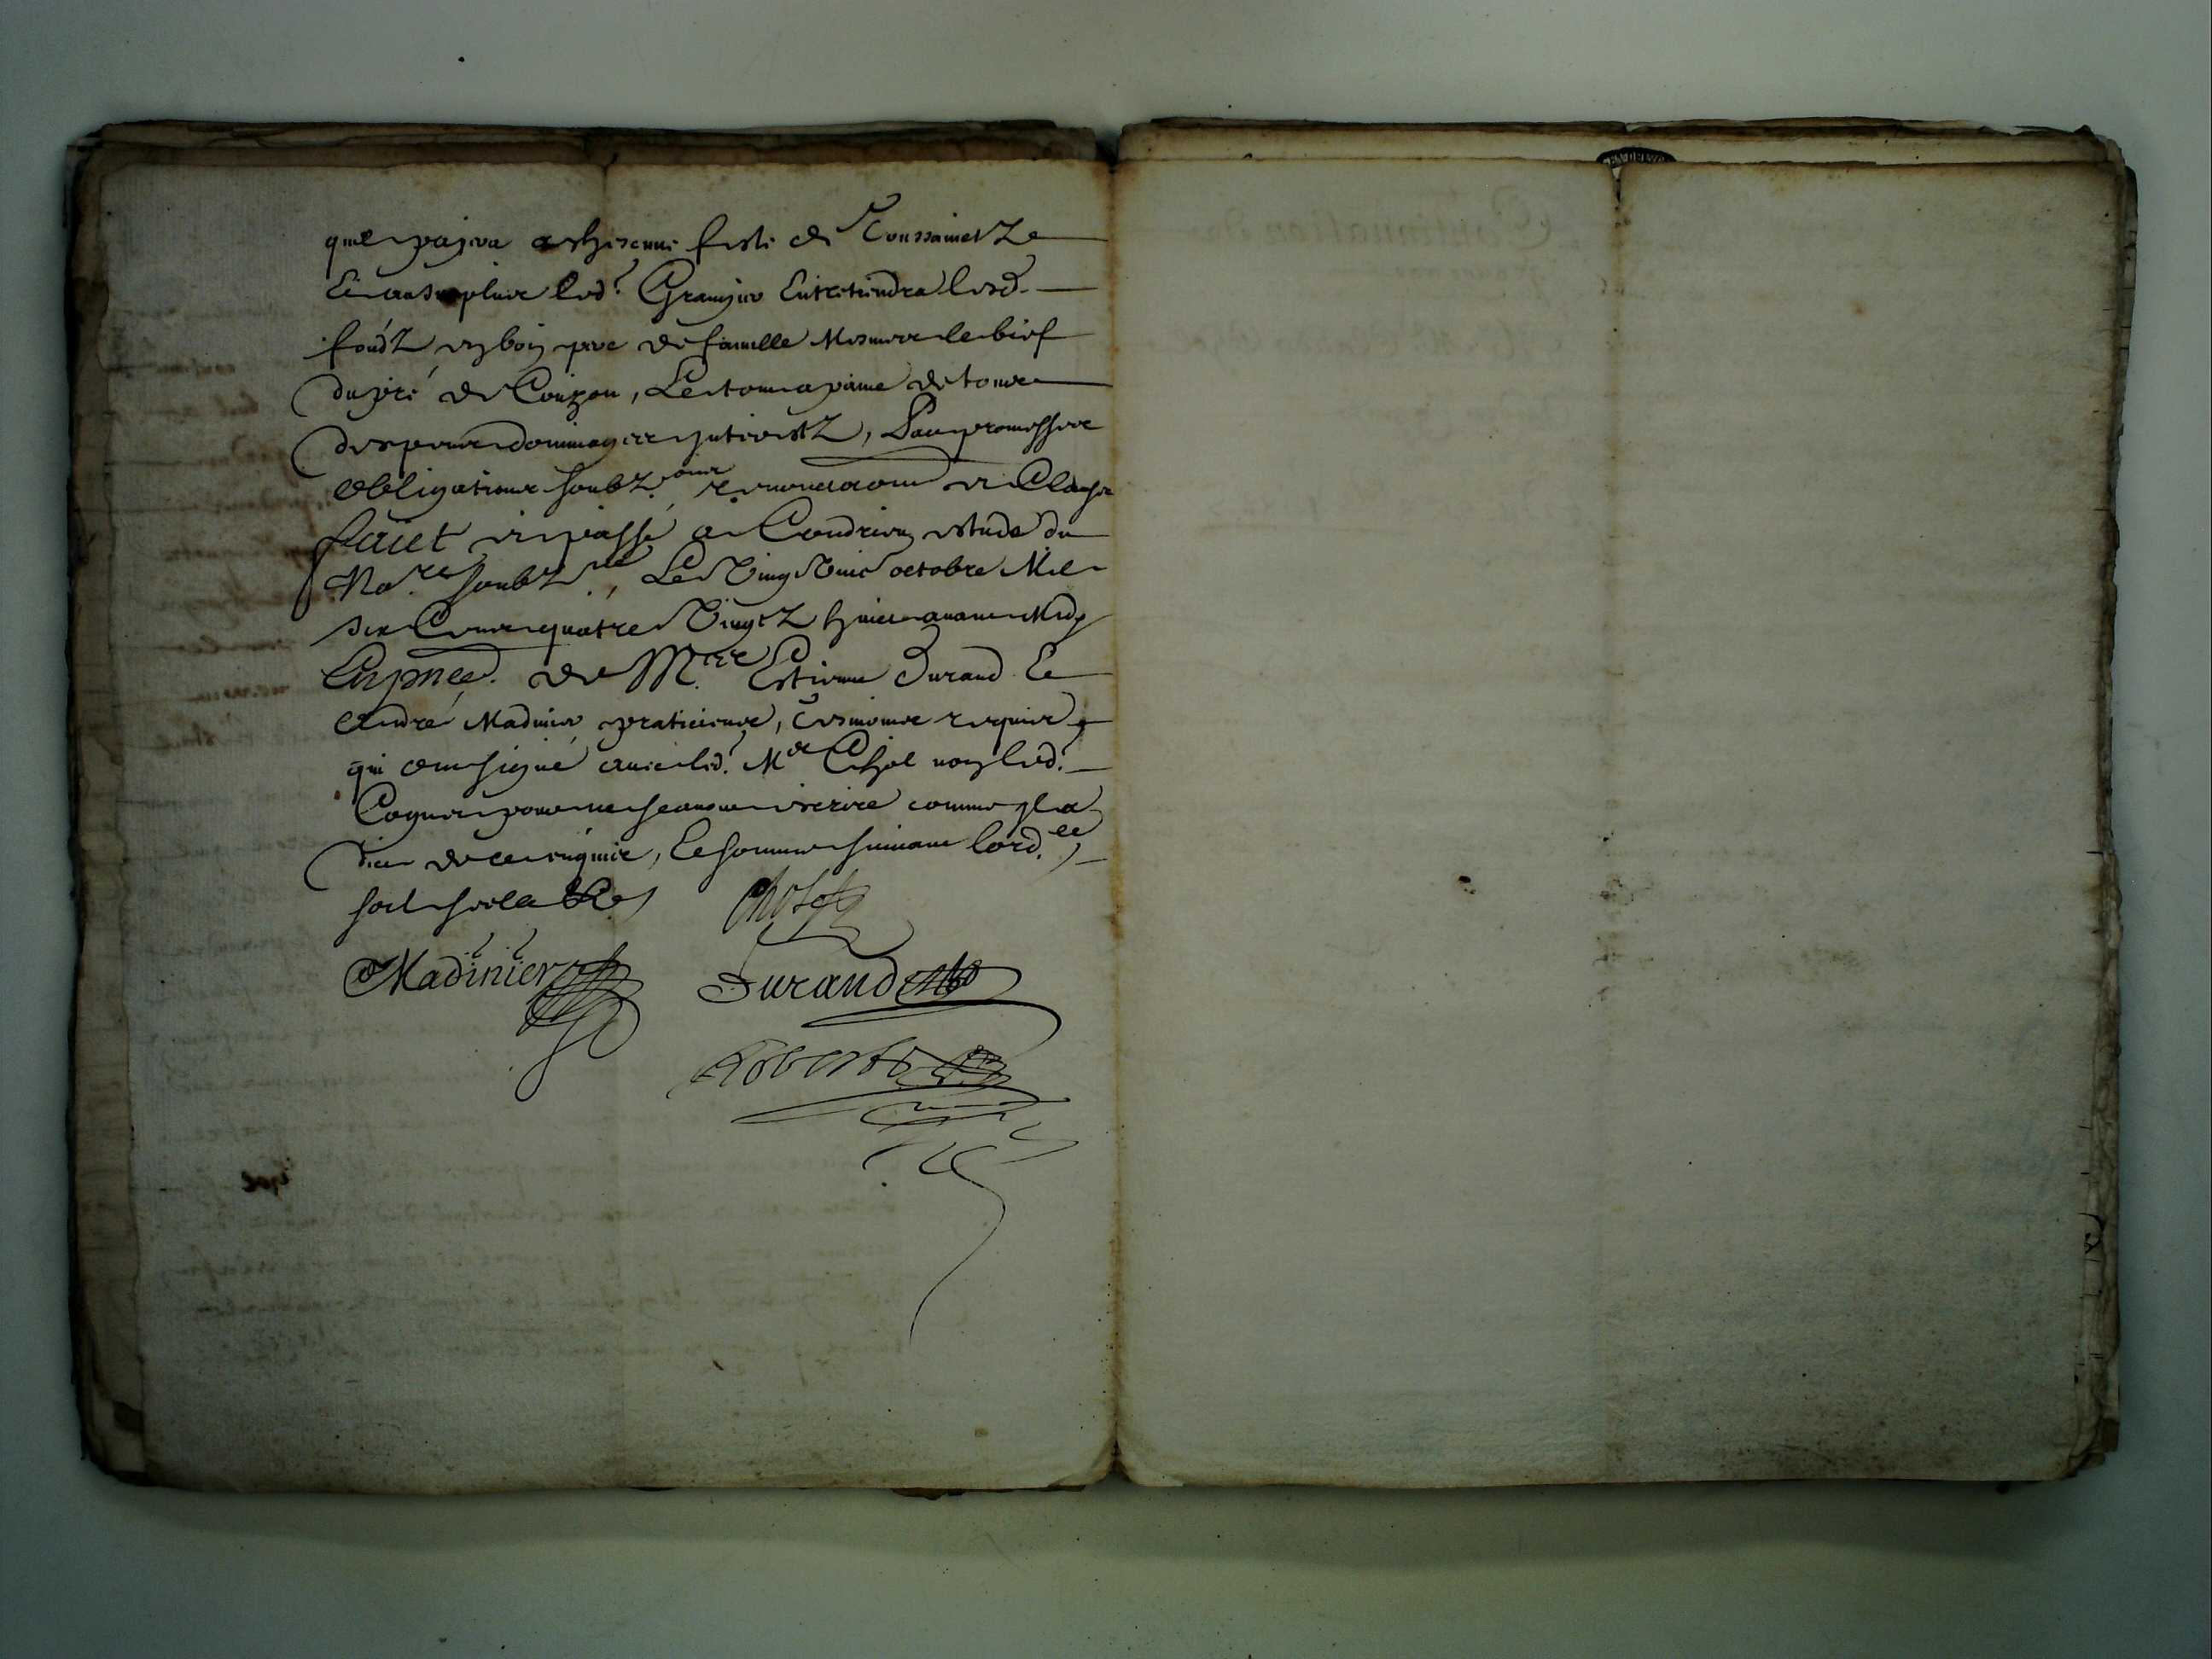 quil payera a chescune feste de Toussainctz
Et au surplus led.t Granjer Entretiendra lesd.
fondz en bon pere de famille Mesmes le bief
du pré de Couzon, Le tout a peine de tous
despens dommages interestz, Par promesses
obligations soubz.ons renonciaons et Clauses
faict et passé a Condrieu estude du
No.re soubz.né, Le Vingt Huict octobre Mil
six Cents quatre Vingtz huict avant Midy
En pnce. de M.re Estienne Durand Et
André Madinier praticiens, tesmoins requis
qui ont signé avec led.t M.e Chol non led.t
pour ne scavoir escrire comme il a
dict de ce enquis, Et sommé suivant l'ord.ce
soit scelé
Chol
Madinier Durand
Robert